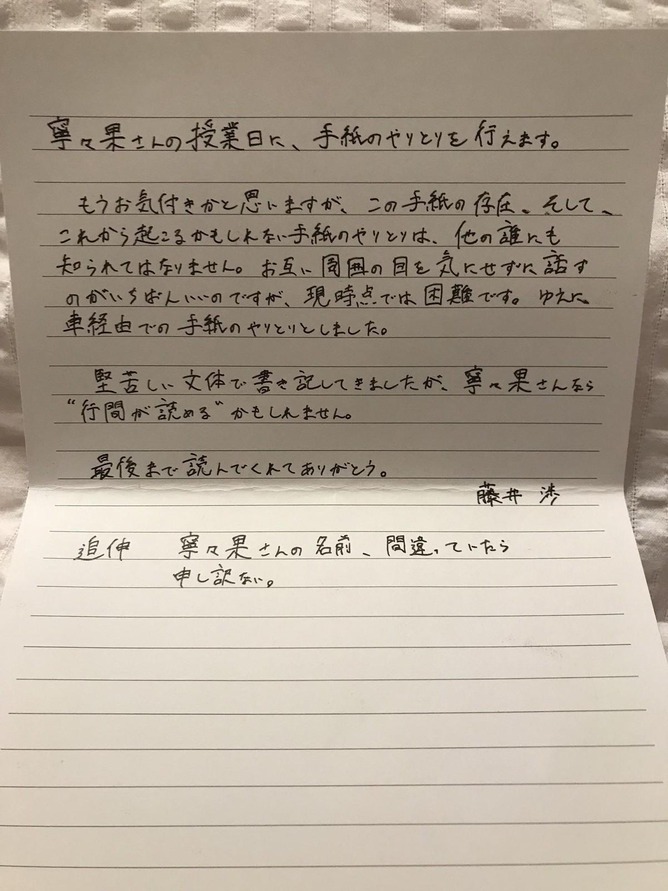 寧々果さんの授業日に、手紙のやりとりを行えます。
もうお気付きかと思いますが、この手紙の存在。そして、
これから起こるかもしれない手紙のやりとりは、他の誰にも
知られてはなりません。お互い周囲の目を気にせずに話す
のがいちばんいいのですが、現時点では困難です。ゆえに、
車経由での手紙のやりとりとしました。
堅苦しい文体で書き記してきましたが、寧々果さんなら
“行間が読める”かもしれません。
最後まで読んでくれてありがとう。
藤井 渉
追伸 寧々果さんの名前、間違っていたら
申し訳ない。